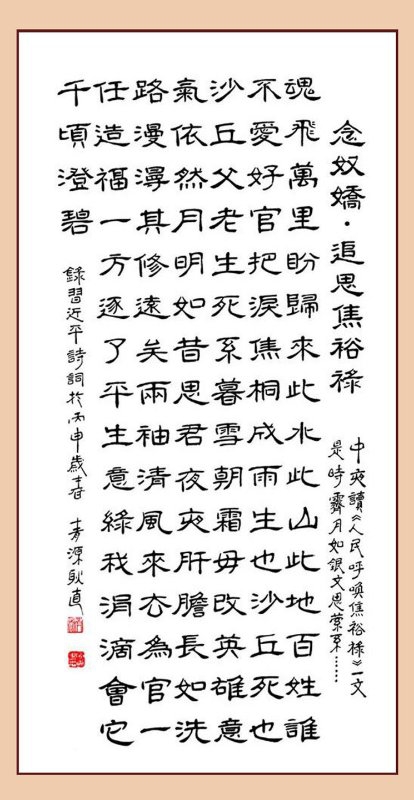 念奴嬌·追思焦裕祿
中夜讀《人民呼喚焦裕祿》一文
是時霽月如銀文思縈系……
魂飛萬里盼歸來此水此山此地百姓誰
不愛好官把淚焦桐成雨生也沙丘死也
沙丘父老生死系暮雪朝霜毋改英雄意
氣依然月明如昔思君夜夜肝膽長如洗
路漫漫其修遠矣兩袖清風來去為官一
任造福一方遂了平生意綠我涓滴會它
千頃澄碧
錄習近平詩詞於丙申歲春 青源耿直